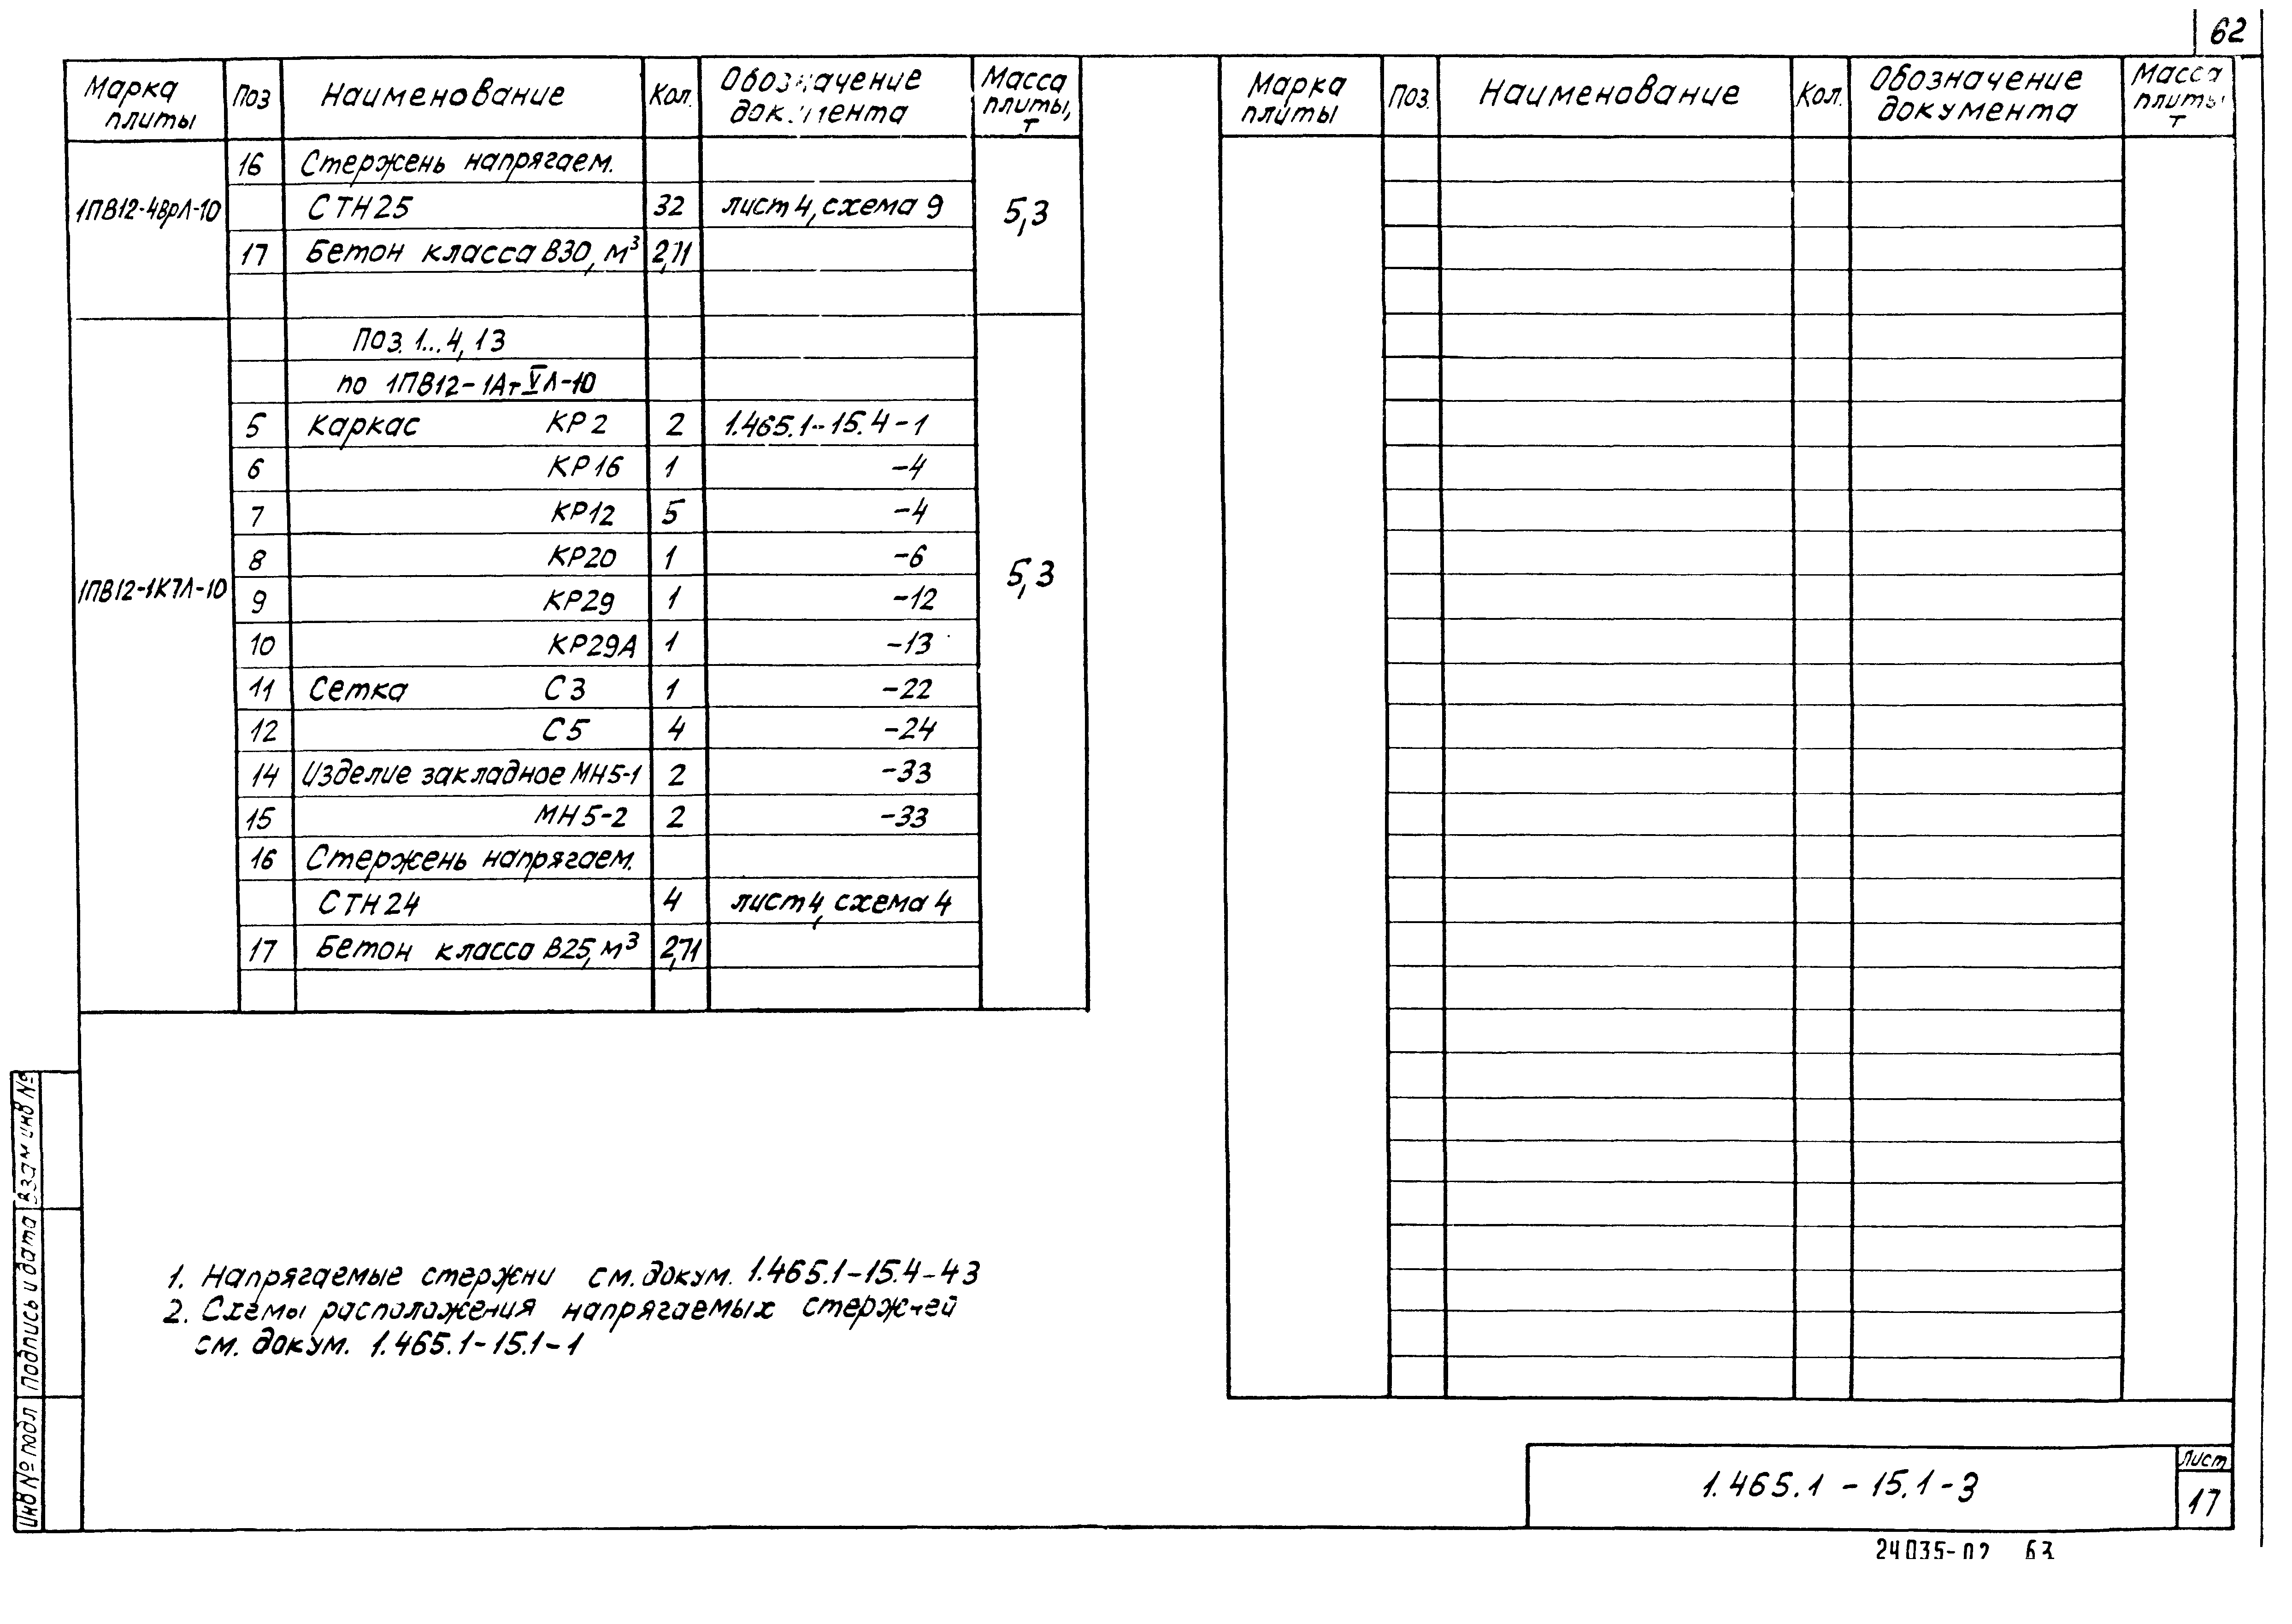 62
Марка плиты | Поз | Наименование | Кол. | Обозначение документа | Масса плиты, т
1ПВ12-4ВрЛ-10 | 16 | Стержень напрягаем. | | | 5,3
СТН25 | 32 | лист 4, схема 9
17 | Бетон класса В30, м³ | 2,71
1ПВ12-1К7Л-10 | | Поз. 1...4, 13 | | | 5,3
по 1ПВ12-1АтⅤЛ-10
5 | Каркас КР2 | 2 | 1.465.1-15.4-1
6 | КР16 | 1 | -4
7 | КР12 | 5 | -4
8 | КР20 | 1 | -6
9 | КР29 | 1 | -12
10 | КР29А | 1 | -13
11 | Сетка С3 | 1 | -22
12 | С5 | 4 | -24
14 | Изделие закладное МН5-1 | 2 | -33
15 | МН5-2 | 2 | -33
16 | Стержень напрягаем.
СТН24 | 4 | лист 4, схема 4
17 | Бетон класса В25, м³ | 2,71
1. Напрягаемые стержни см. докум. 1.465.1-15.4-43
2. Схемы расположения напрягаемых стержней
см. докум. 1.465.1-15.1-1
Марка плиты | Поз. | Наименование | Кол. | Обозначение документа | Масса плиты, т
Инв № подл | Подпись и дата | Взам инв №
1.465.1-15.1-3
Лист
17
24035-02 63